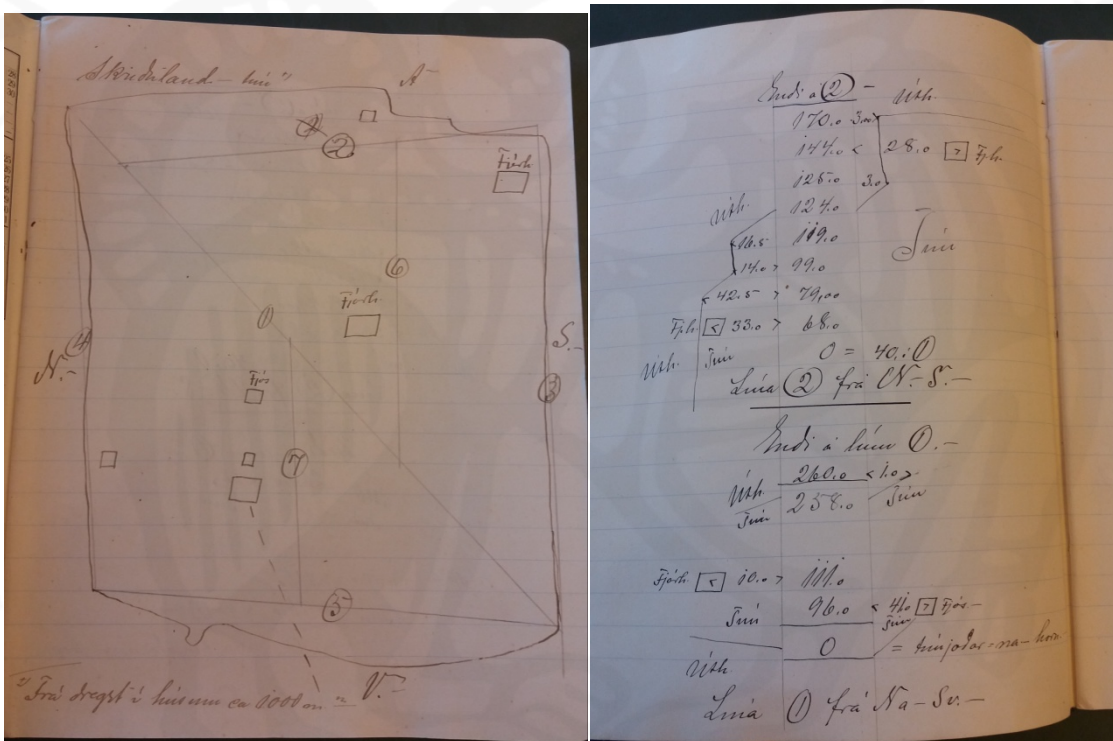 Skriðuland - tún"
A-
1
2
Fjárh
6
Fjárh.
1
N.-
4
S.-
3
Fjós
7
5
V.-
Frá dregst í húsum ca 1000 m
Endi á 2 -
Úth.
170.0 3.00
144.0 < 28.0 > Fjh.
125.0 3.0
Úth. 124.0
16.5 119.0
Tún
14.0 > 99.0
< 42.5 > 79,00
Fjh < 33.0 > 68.0
Úth. Tún 0 = 40. í 1
Línia 2 frá N.- S.-
Endi á línu 1.-
Úth. 260.0 < 1.0 >
Tún 258.0 Tún
Fjárh. < 10.0 > 111.0
Tún 96.0 < 41.0 > Fjós-
Tún
0 = túnjaðar-na-horn
Úth
Línia 1 frá Na-Sv.-